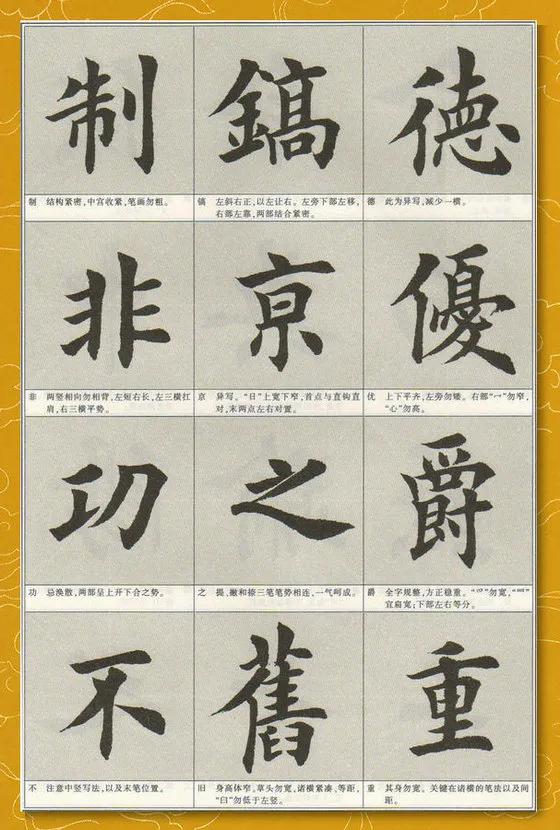 德
德 此为异写,减少一横。
優
优 上下平齐,左旁勿矮。右部“冖”勿窄,
“心”勿高。
爵
爵 全字规整,方正稳重。“爫”勿宽,“罒”
宜扁宽;下部左右等分。
重
重 其身勿宽。关键在诸横的笔法以及间
距。
鎬
镐 左斜右正,以左让右。左旁下部左移,
右部左靠,两部结合紧密。
亰
京 异写。“日”上宽下窄,首点与直钩直
对,末两点左右对置。
之
之 提、撇和捺三笔笔势相连,一气呵成。
舊
旧 身高体窄。草头勿宽,诸横紧凑、等距,
“臼”勿低于左竖。
制
制 结构紧密,中宫收紧,笔画勿粗。
非
非 两竖相向勿相背,左短右长,左三横扛
肩,右三横平势。
功
功 忌涣散,两部呈上开下合之势。
不
不 注意中竖写法,以及末笔位置。